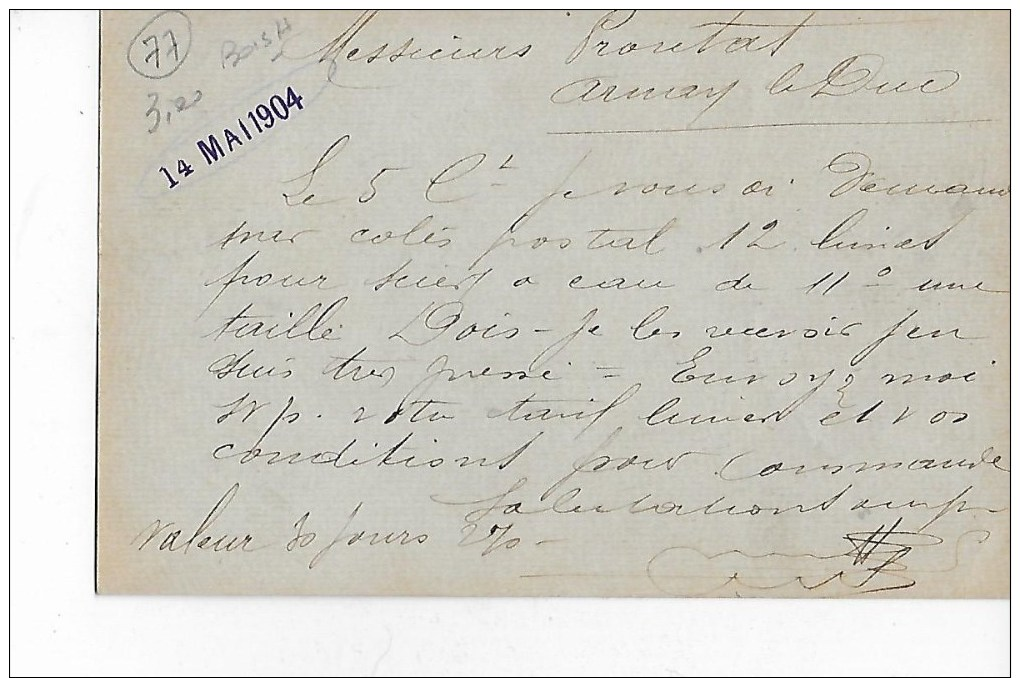 77
3,20
14 MAI 1904
Messieurs Proutat
Arnay le Duc
Le 5 Ct je vous ai demand
par colis postal 12 limes
pour scier à eau de 11° une
taille Dois-je les recevoir j'en
suis très pressé = Envoyez moi
svp. votre tarif limes et vos
conditions pour commande
Salutations emp
Valeur 30 jours 2% -